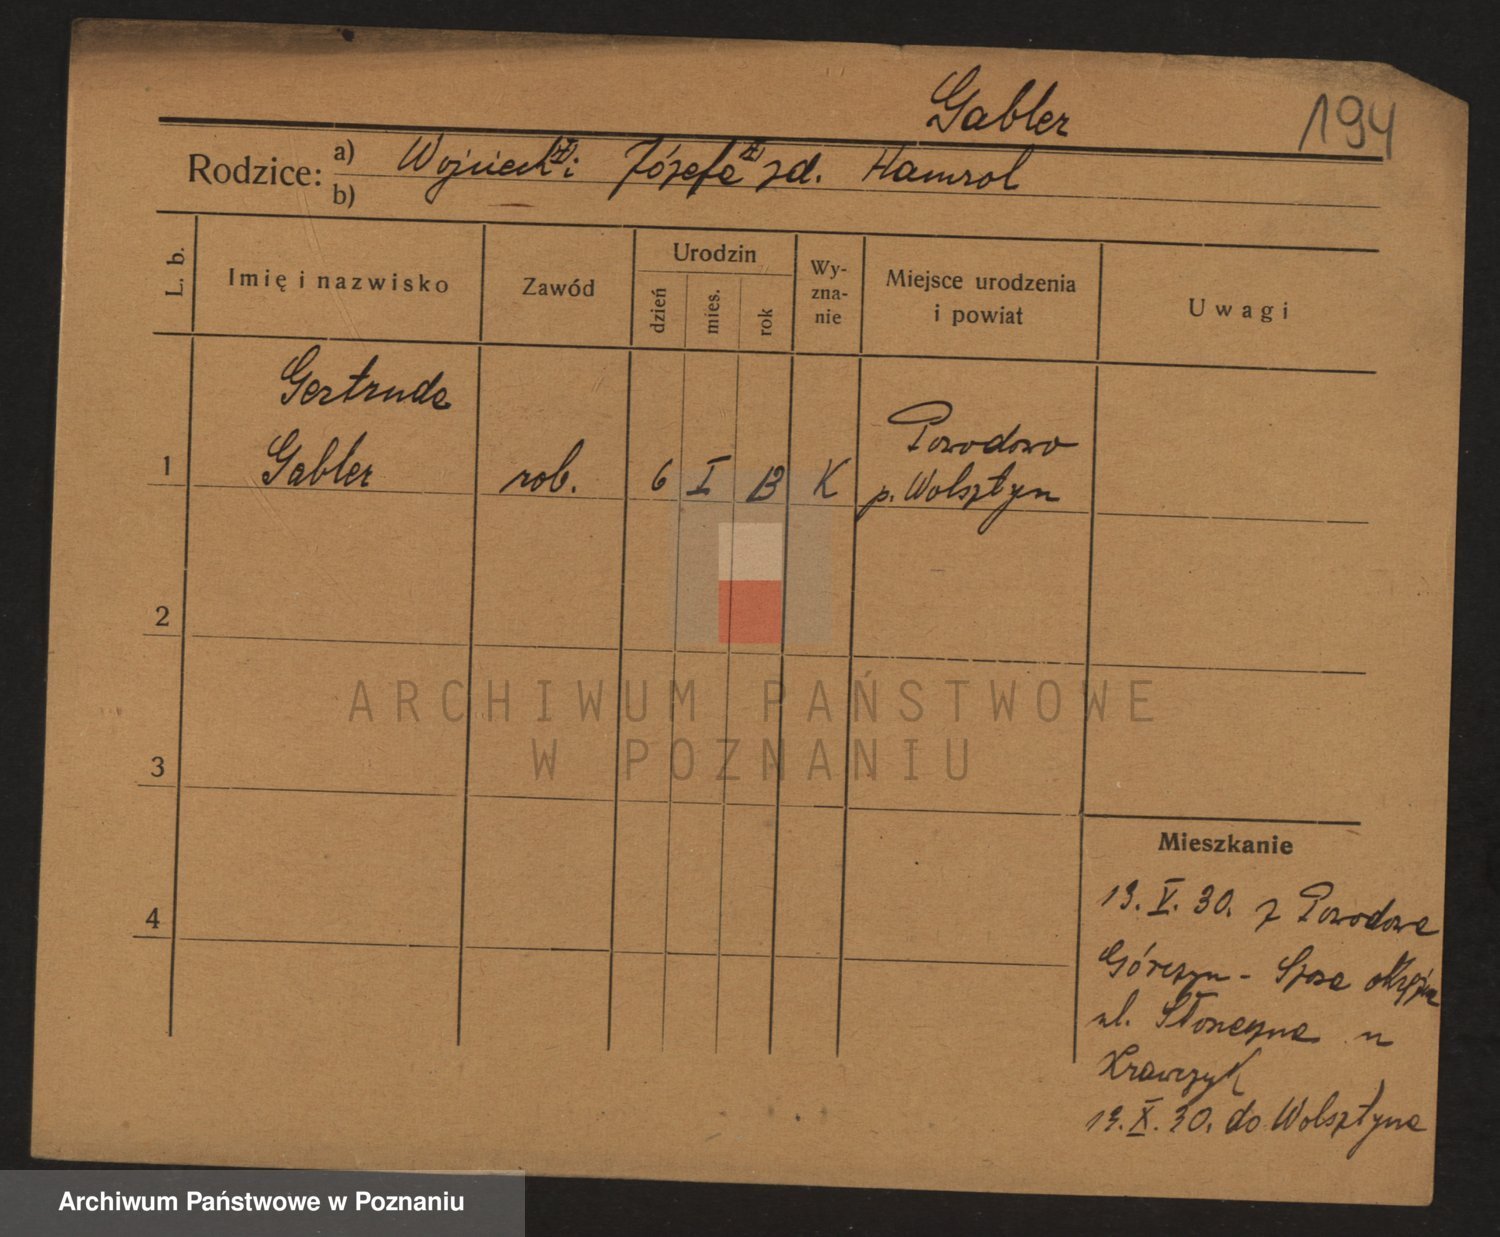 Gabler
194
Rodzice: a) Wojciech i Józefa zd. Hamrol
b)
L. b. Imię i nazwisko Zawód Urodzin dzień mies. rok Wy-zna-nie Miejsce urodzenia i powiat Uwagi
Gertruda Powodowo
1 Gabler rob. 6 I 13 K p. Wolsztyn
2
3
4
Mieszkanie
13. V. 30. z Powodowa
Górczyn - Szosa okrężna
ul. Słoneczna u
Krawczyk
13. X. 30. do Wolsztyna
ARCHIWUM PAŃSTWOWE
W POZNANIU
Archiwum Państwowe w Poznaniu